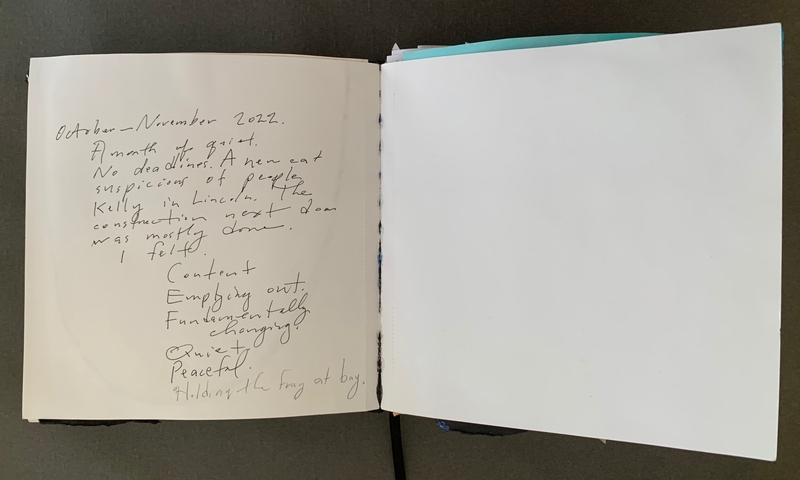 October – November 2022.
A month of quiet.
No deadlines. A new cat
suspicious of people
Kelly in Lincoln. The
construction next door
was mostly done.
I felt.
Content
Emptying out.
Fundamentally
changing.
Quiet.
Peaceful.
Holding the fray at bay.